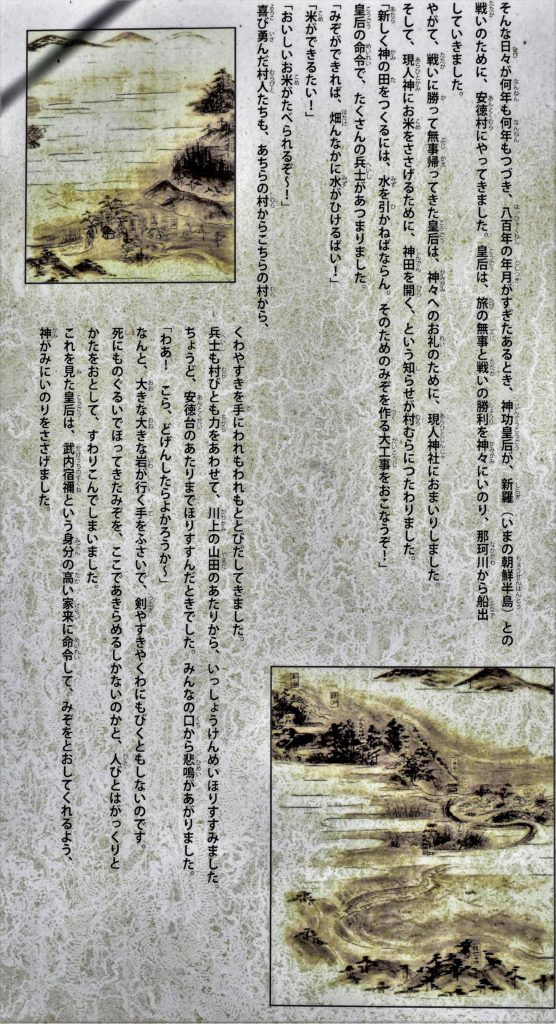 そんな日々が何年も何年もつづき、八百年の年月がすぎたあるとき、神功皇后が、新羅（いまの朝鮮半島）との
戦いのために、安徳村にやってきました。皇后は、旅の無事と戦いの勝利を神々にいのり、那珂川から船出
していきました。
やがて、戦いに勝って無事帰ってきた皇后は、神々へのお礼のために、現人神社におまいりしました。
そして、現人神にお米をささげるために、神田を開く、という知らせが村むらにつたわりました。
「新しく神の田をつくるには、水を引かねばならん。そのためのみぞを作る大工事をおこなうぞ！」
皇后の命令で、たくさんの兵士があつまりました。
「みぞができれば、畑んなかに水がひけるばい！」
「米ができるたい！」
「おいしいお米がたべられるぞ〜！」
喜び勇んだ村人たちも、あちらの村からこちらの村から、
くわやすきを手にわれもわれもととびだしてきました。
兵士も村びとも力をあわせて、川上の山田のあたりから、いっしょうけんめいほりすすみました
ちょうど、安徳台のあたりまでほりすすんだときでした。みんなの口から悲鳴があがりました。
「わあ！　こら、どげんしたらよかろうか〜」
なんと、大きな大きな岩が行く手をふさいで、剣やすきやくわにもびくともしないのです
死にものぐるいでほってきたみぞを、ここであきらめるしかないのかと、人びとはがっくりと
かたをおとして、すわりこんでしまいました。
これを見た皇后は、武内宿禰という身分の高い家来に命令して、みぞをとおしてくれるよう、
神がみにいのりをささげました。